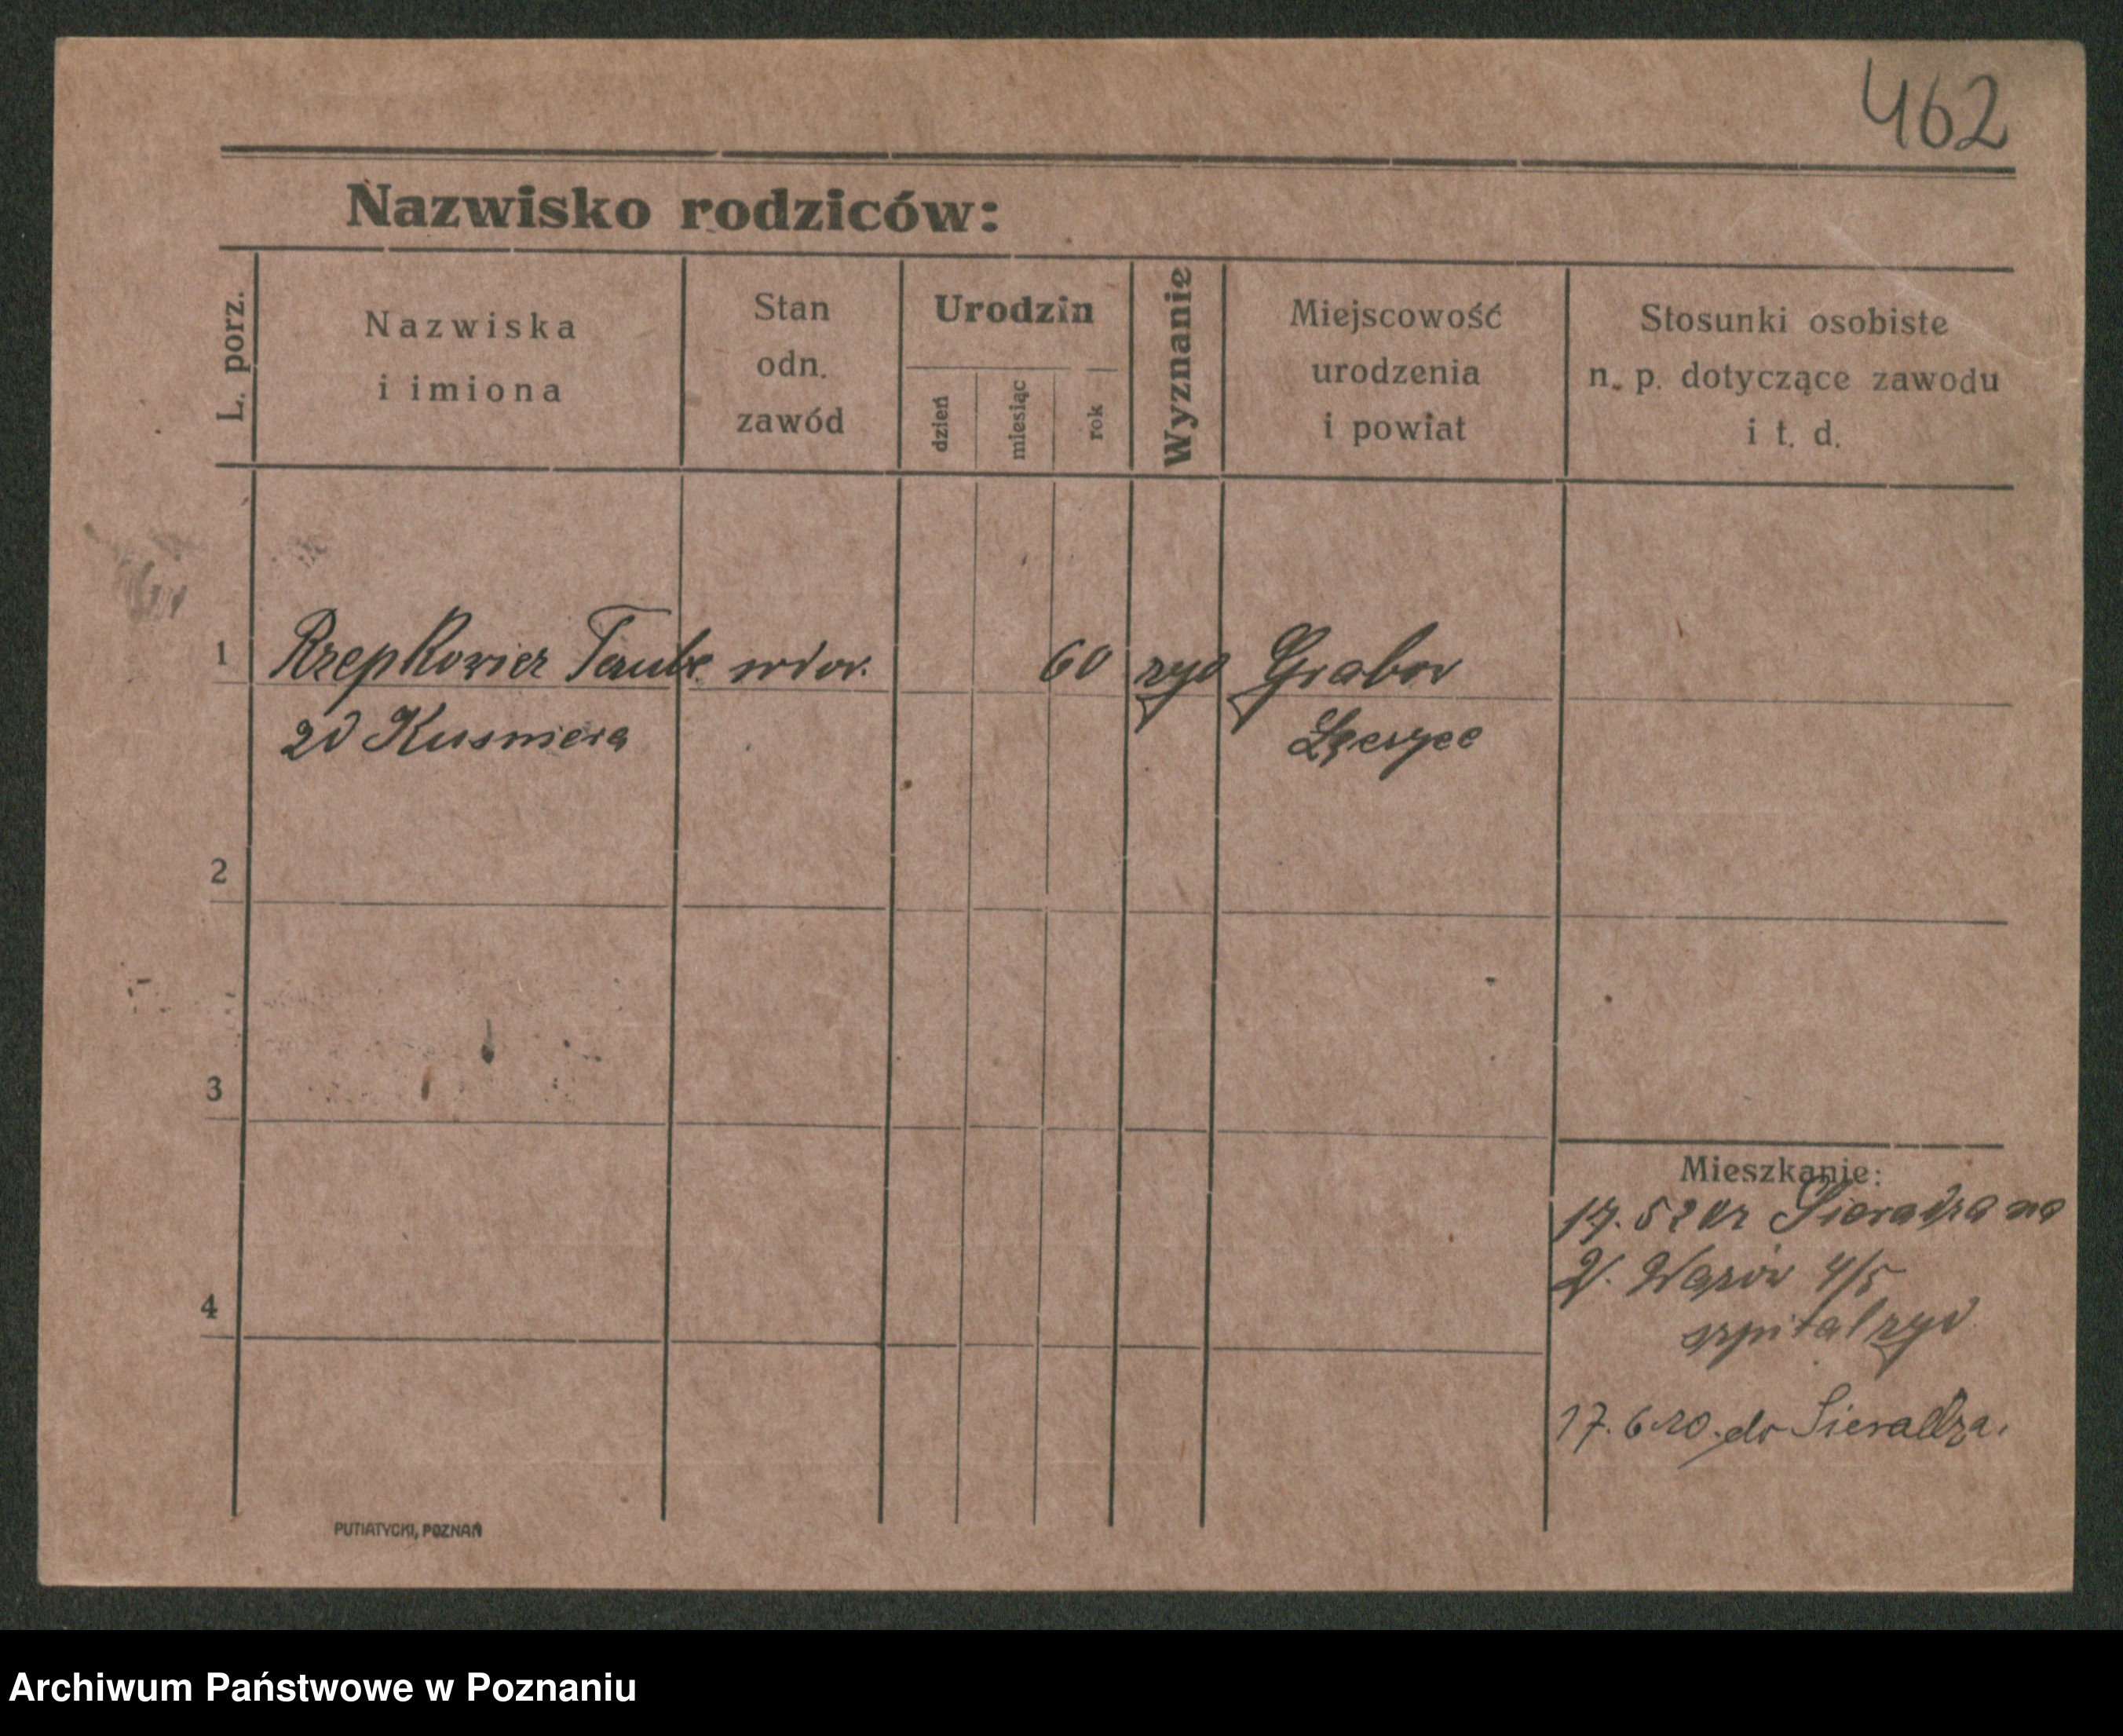 462
Nazwisko rodziców:
L. porz.
Nazwiska
i imiona
Stan
odn.
zawód
Urodzin
dzień
miesiąc
rok
Wyznanie
Miejscowość
urodzenia
i powiat
Stosunki osobiste
n. p. dotyczące zawodu
i t. d.
1 Rzepkowicz Taube wdow. 60 żyd Grabow
zd Kusmiera Łęczyce
2
3
4
Mieszkanie:
17. 5 Sieradza na
W. 4/5
szpital żyd
17. 6 20. do Sieradza.
PUTIATYCKI, POZNAŃ
Archiwum Państwowe w Poznaniu